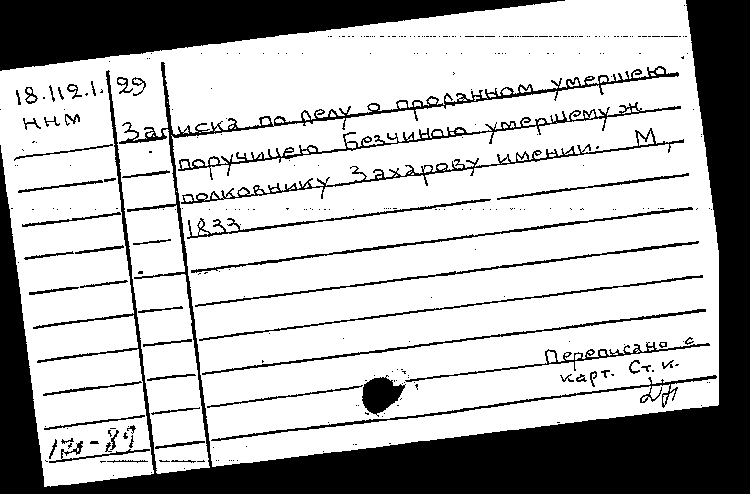 18.112.1.29
ННМ
Записка по делу о проданном умершею
поручицею Безчиною умершему ж
полковнику Захарову имении. М.,
1833
Переписано с
карт. Ст. к.
-89